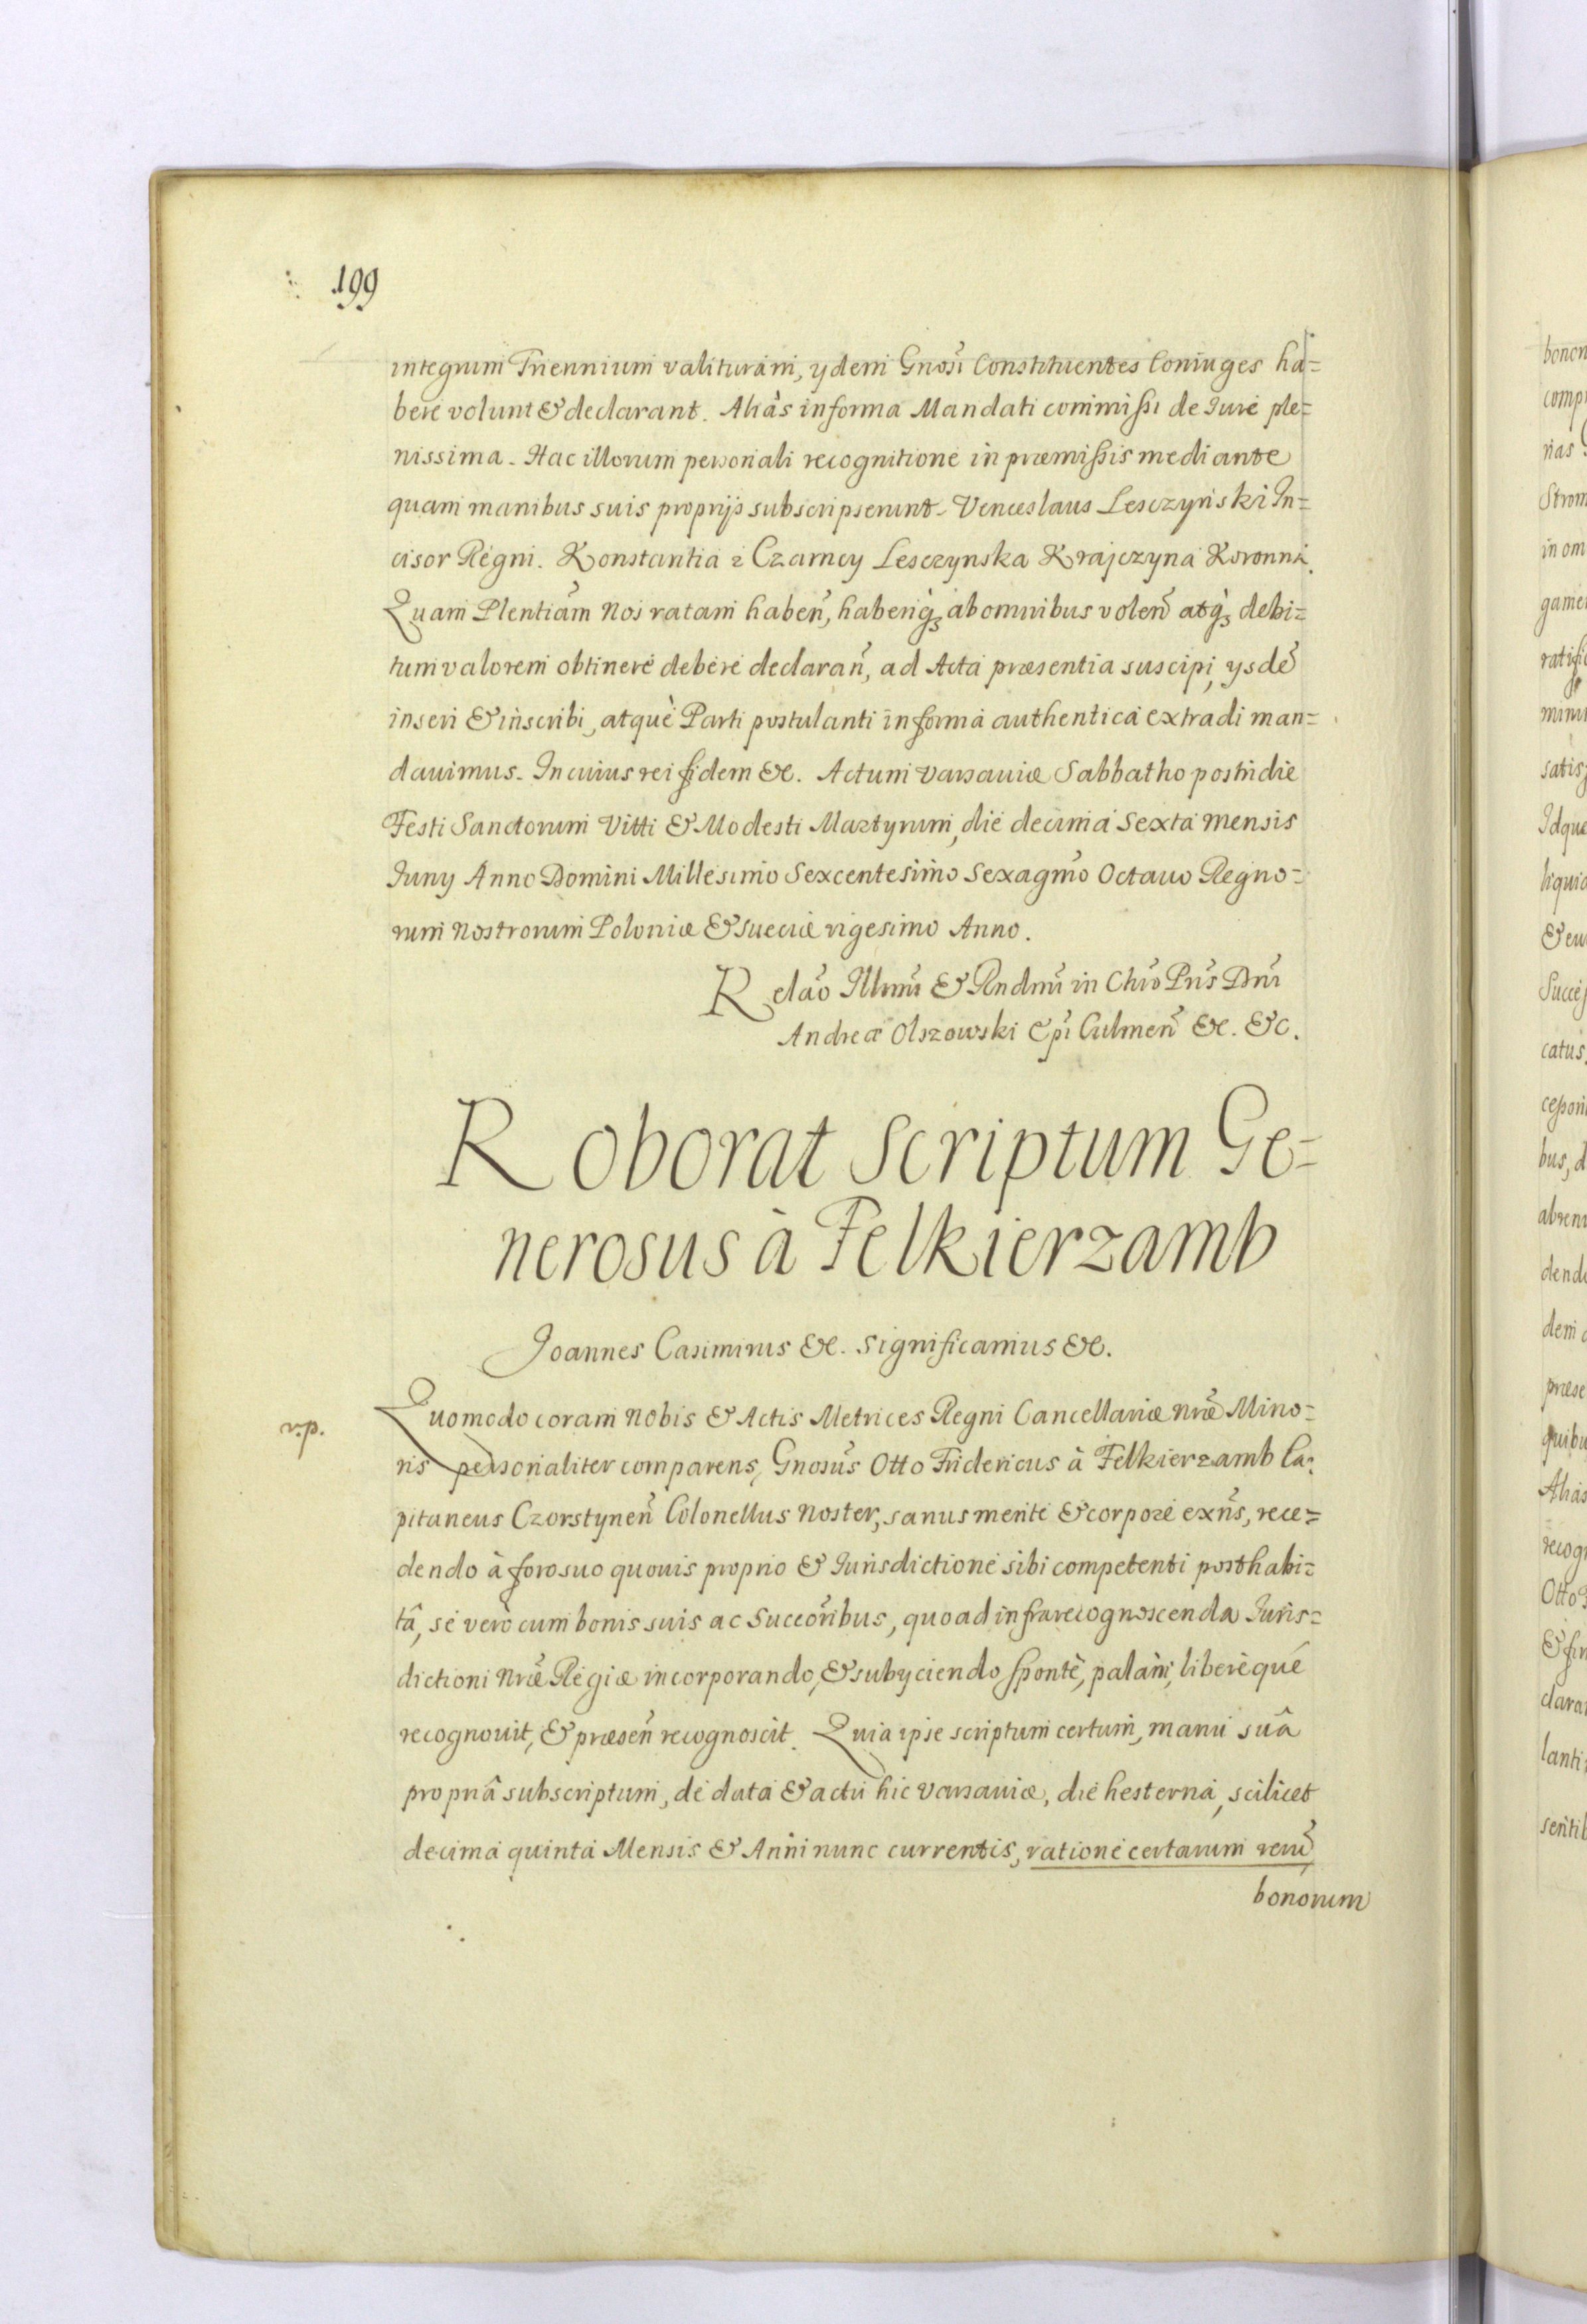 199
integrum Triennium valituram, ydem Gnosi Constituentes Coniuges ha=
bere volunt & declarant. Aliàs in forma Mandati commissi de Iure ple=
nissima. Hac illorum personali recognitione in præmissis mediante
quam manibus suis proprijs subscripserunt. Venceslaus Lesczyński In=
cisor Regni. Konstantia z Czarncy Lesczynska Krajczyna Koronna.
Quam Plentiam Nos ratam haben̄, habenq́ȝ ab omnibus volen̄ atq́ȝ debi=
tum valorem obtinere debere declaran̄, ad Acta præsentia suscipi, ysdē
inseri & inscribi, atquè Parti postulanti in forma authentica extradi man=
dauimus. In cuius rei fidem &c. Actum Varsauiæ Sabbatho postridie
Festi Sanctorum Vitti & Modesti Martyrum, die decima Sexta mensis
Iuny Anno Domini Millesimo Sexcentesimo Sexagm̄o Octauo Regno=
rum Nostrorum Poloniæ & Sueciæ vigesimo Anno.
Relaō Illmī & Rndmī in Chrō Prīs Dnī
Andreæ Olszowski Epī Culmen̄ &c. &c.
Roborat Scriptum Ge=
nerosus à Felkierzamb
Joannes Casimirus &c. Significamus &c.
v.p.
Quomodo coram Nobis & Actis Metrices Regni Cancellariæ nrǣ Mino=
ris personaliter comparens, Gnosūs Otto Fridericus à Felkierzamb Ca=
pitaneus Czorstynen̄ Colonellus Noster, sanus mente & corpore exn̄s, rece=
dendo à foro suo quouis proprio & Iurisdictione sibi competenti posthabi=
tâ, se verò cum bonis suis ac Succorībus, quoad infrarecognoscenda Juris=
dictioni Nrǣ Regiæ incorporando, & subyciendo spontè, palàm, liberèque
recognouit, & præsen̄ recognoscit. Quia ipse scriptum certum, manu suâ
propriâ subscriptum, de data & actu hic Varsauiæ, die hesterna, scilicet
decima quinta Mensis & Anni nunc currentis, ratione certarum rerū,
bonorum